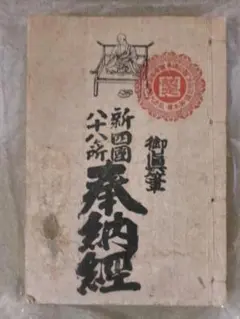 御眞筆
新四國
八十八所
奉納經